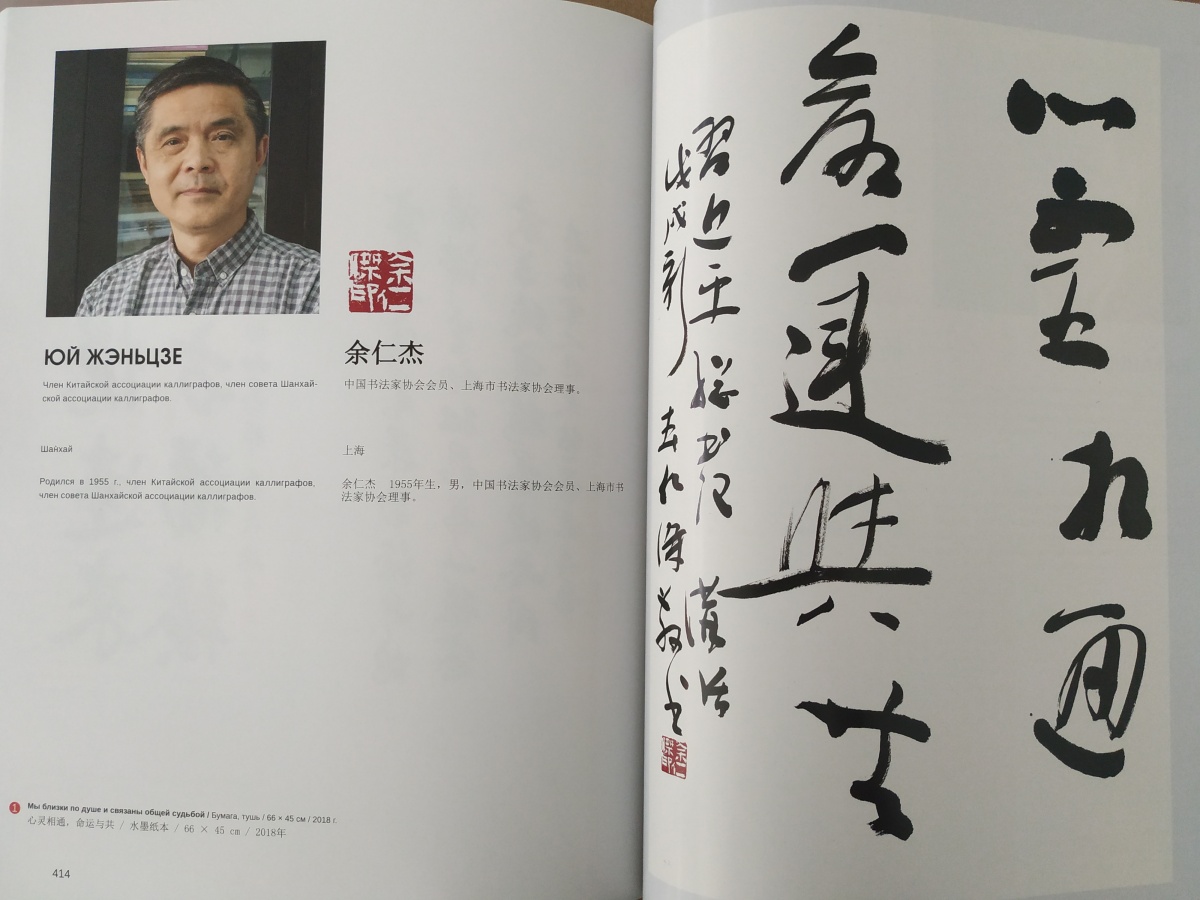 ЮЙ ЖЭНЬЦЗЕ
Член Китайской ассоциации каллиграфов, член совета Шанхай-
ской ассоциации каллиграфов.
Шанхай
Родился в 1955 г., член Китайской ассоциации каллиграфов,
член совета Шанхайской ассоциации каллиграфов.
余仁
傑印
余仁杰
中国书法家协会会员、上海市书法家协会理事。
上海
余仁杰 1955年生，男，中国书法家协会会员、上海市书
法家协会理事。
1 Мы близки по душе и связаны общей судьбой / Бумага, тушь / 66 × 45 cm / 2018 г.
心灵相通，命运与共 / 水墨纸本 / 66 × 45 cm / 2018年
414
心靈相通
命運與共
習近平總书记講话
戊戌新春仁傑敬书
余仁
傑印